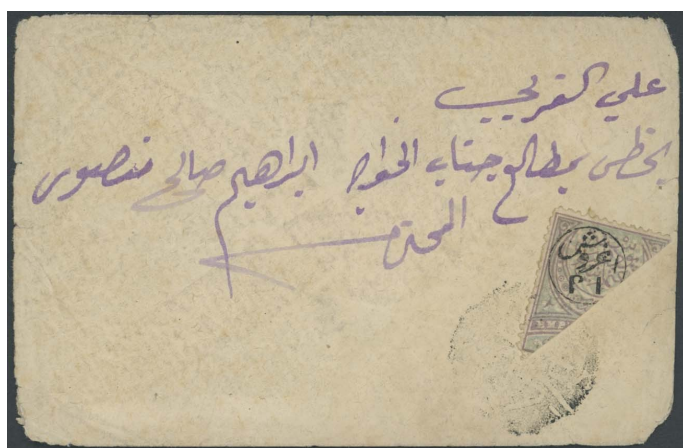 علي الغربي
يحظى بمطالع جناب الخواجا ابراهيم صالح منصور
المحترم
غروش